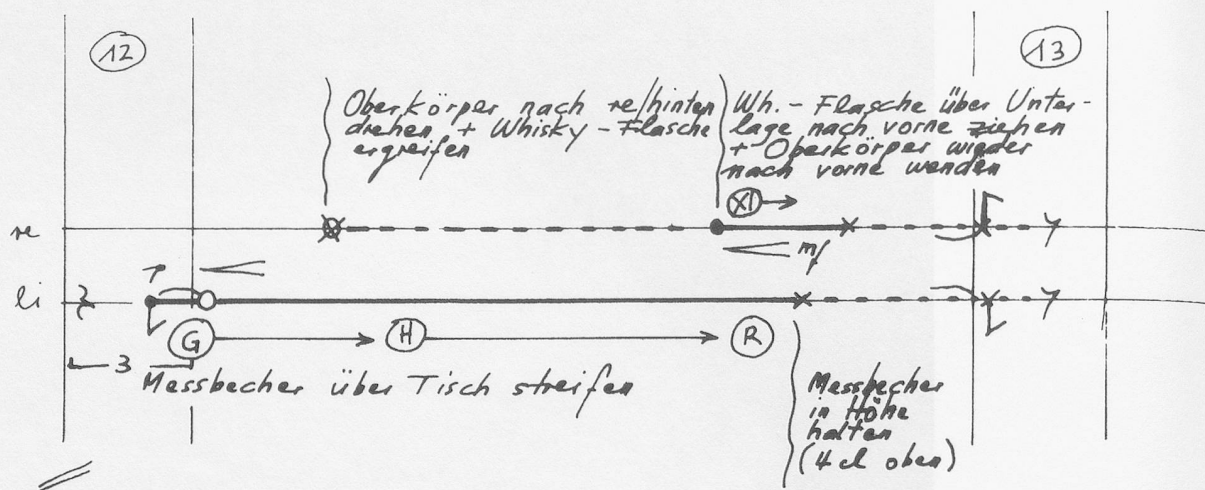 12
13
Oberkörper nach re/hinten
drehen + Whisky-Flasche
ergreifen
Wh. - Flasche über Unter-
lage nach vorne ziehen
+ Oberkörper wieder
nach vorne wenden
XI
re
mf
li
G
H
R
3
Messbecher über Tisch streifen
Messbecher
in Höhe
halten
(4 cl oben)